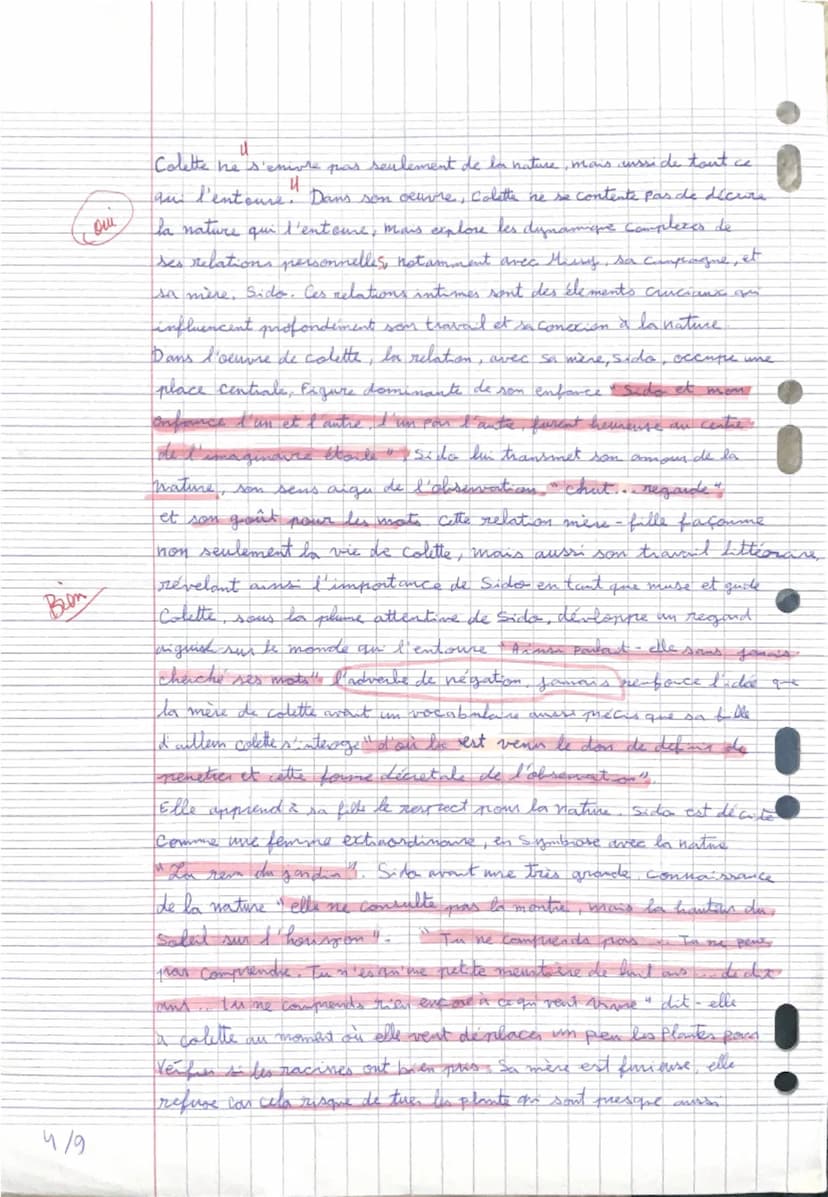 Colette ne "s'enivre pas seulement de la nature, mais aussi de tout ce
oui
qui l'entoure." Dans son oeuvre, Colette ne se contente pas de décrire
la nature qui l'entoure, mais explore les dynamique complexes de
ses relations personnelles, notamment avec Missy, sa compagne, et
sa mère, Sido. Ces relations intimes sont des élements cruciaux qui
influencent profondément son travail et sa conexion à la nature.
Dans l'oeuvre de colette, la relation, avec sa mère, Sido, occupe une
place centrale, Figure dominante de son enfance "Sido et mon
enfance l'un et l'autre, l'un par l'autre, furent heureuse au centre
de l'imaginaire étoile", Sido lui transmet son amour de la
nature, son sens aigu de l'observation, "chut... regarde"
et son goût pour les mots cette relation mère-fille façonne
non seulement la vie de Colette, mais aussi son travail littéraire,
Bien
révelant ainsi l'importance de Sido en tant que muse et guide
Colette, sous la plume attentive de Sido, dévloppe un regard
aiguisé sur le monde qui l'entoure "Ainsi parlait-elle sans jamais
cherché ses mots" l'adverbe de négation, jamais renforce l'idée que
la mère de colette avait un vocabulaire aussi précis que sa fille
d'aillem colette s'interoge "d'où lui est venu le don de definir de
penetrer et cette forme décretale de l'observation".
Elle apprend à sa fille le respect pour la nature. Sido est décrite
comme une femme extraordinaire, en Symbiose avec la nature
"La rein du jardin". Sido avait une très grande connaissance
de la nature "elle ne consulte pas la montre, mais la hauteur du
Soleil sur l'horizon". "Tu ne comprends pas... Tu ne peux
pas comprendre. Tu n'es qu'une petite meurtrière de huit ans... de dix
ans... tu ne comprends rien encore à ce qui veut vivre" dit-elle
à colette au moment où elle veut déplacer un peu les plantes pour
Vérifier si les racines ont bien pris. Sa mère est furieuse, elle
refuse car cela risque de tuer les plante qui sont presque aussi
4/9